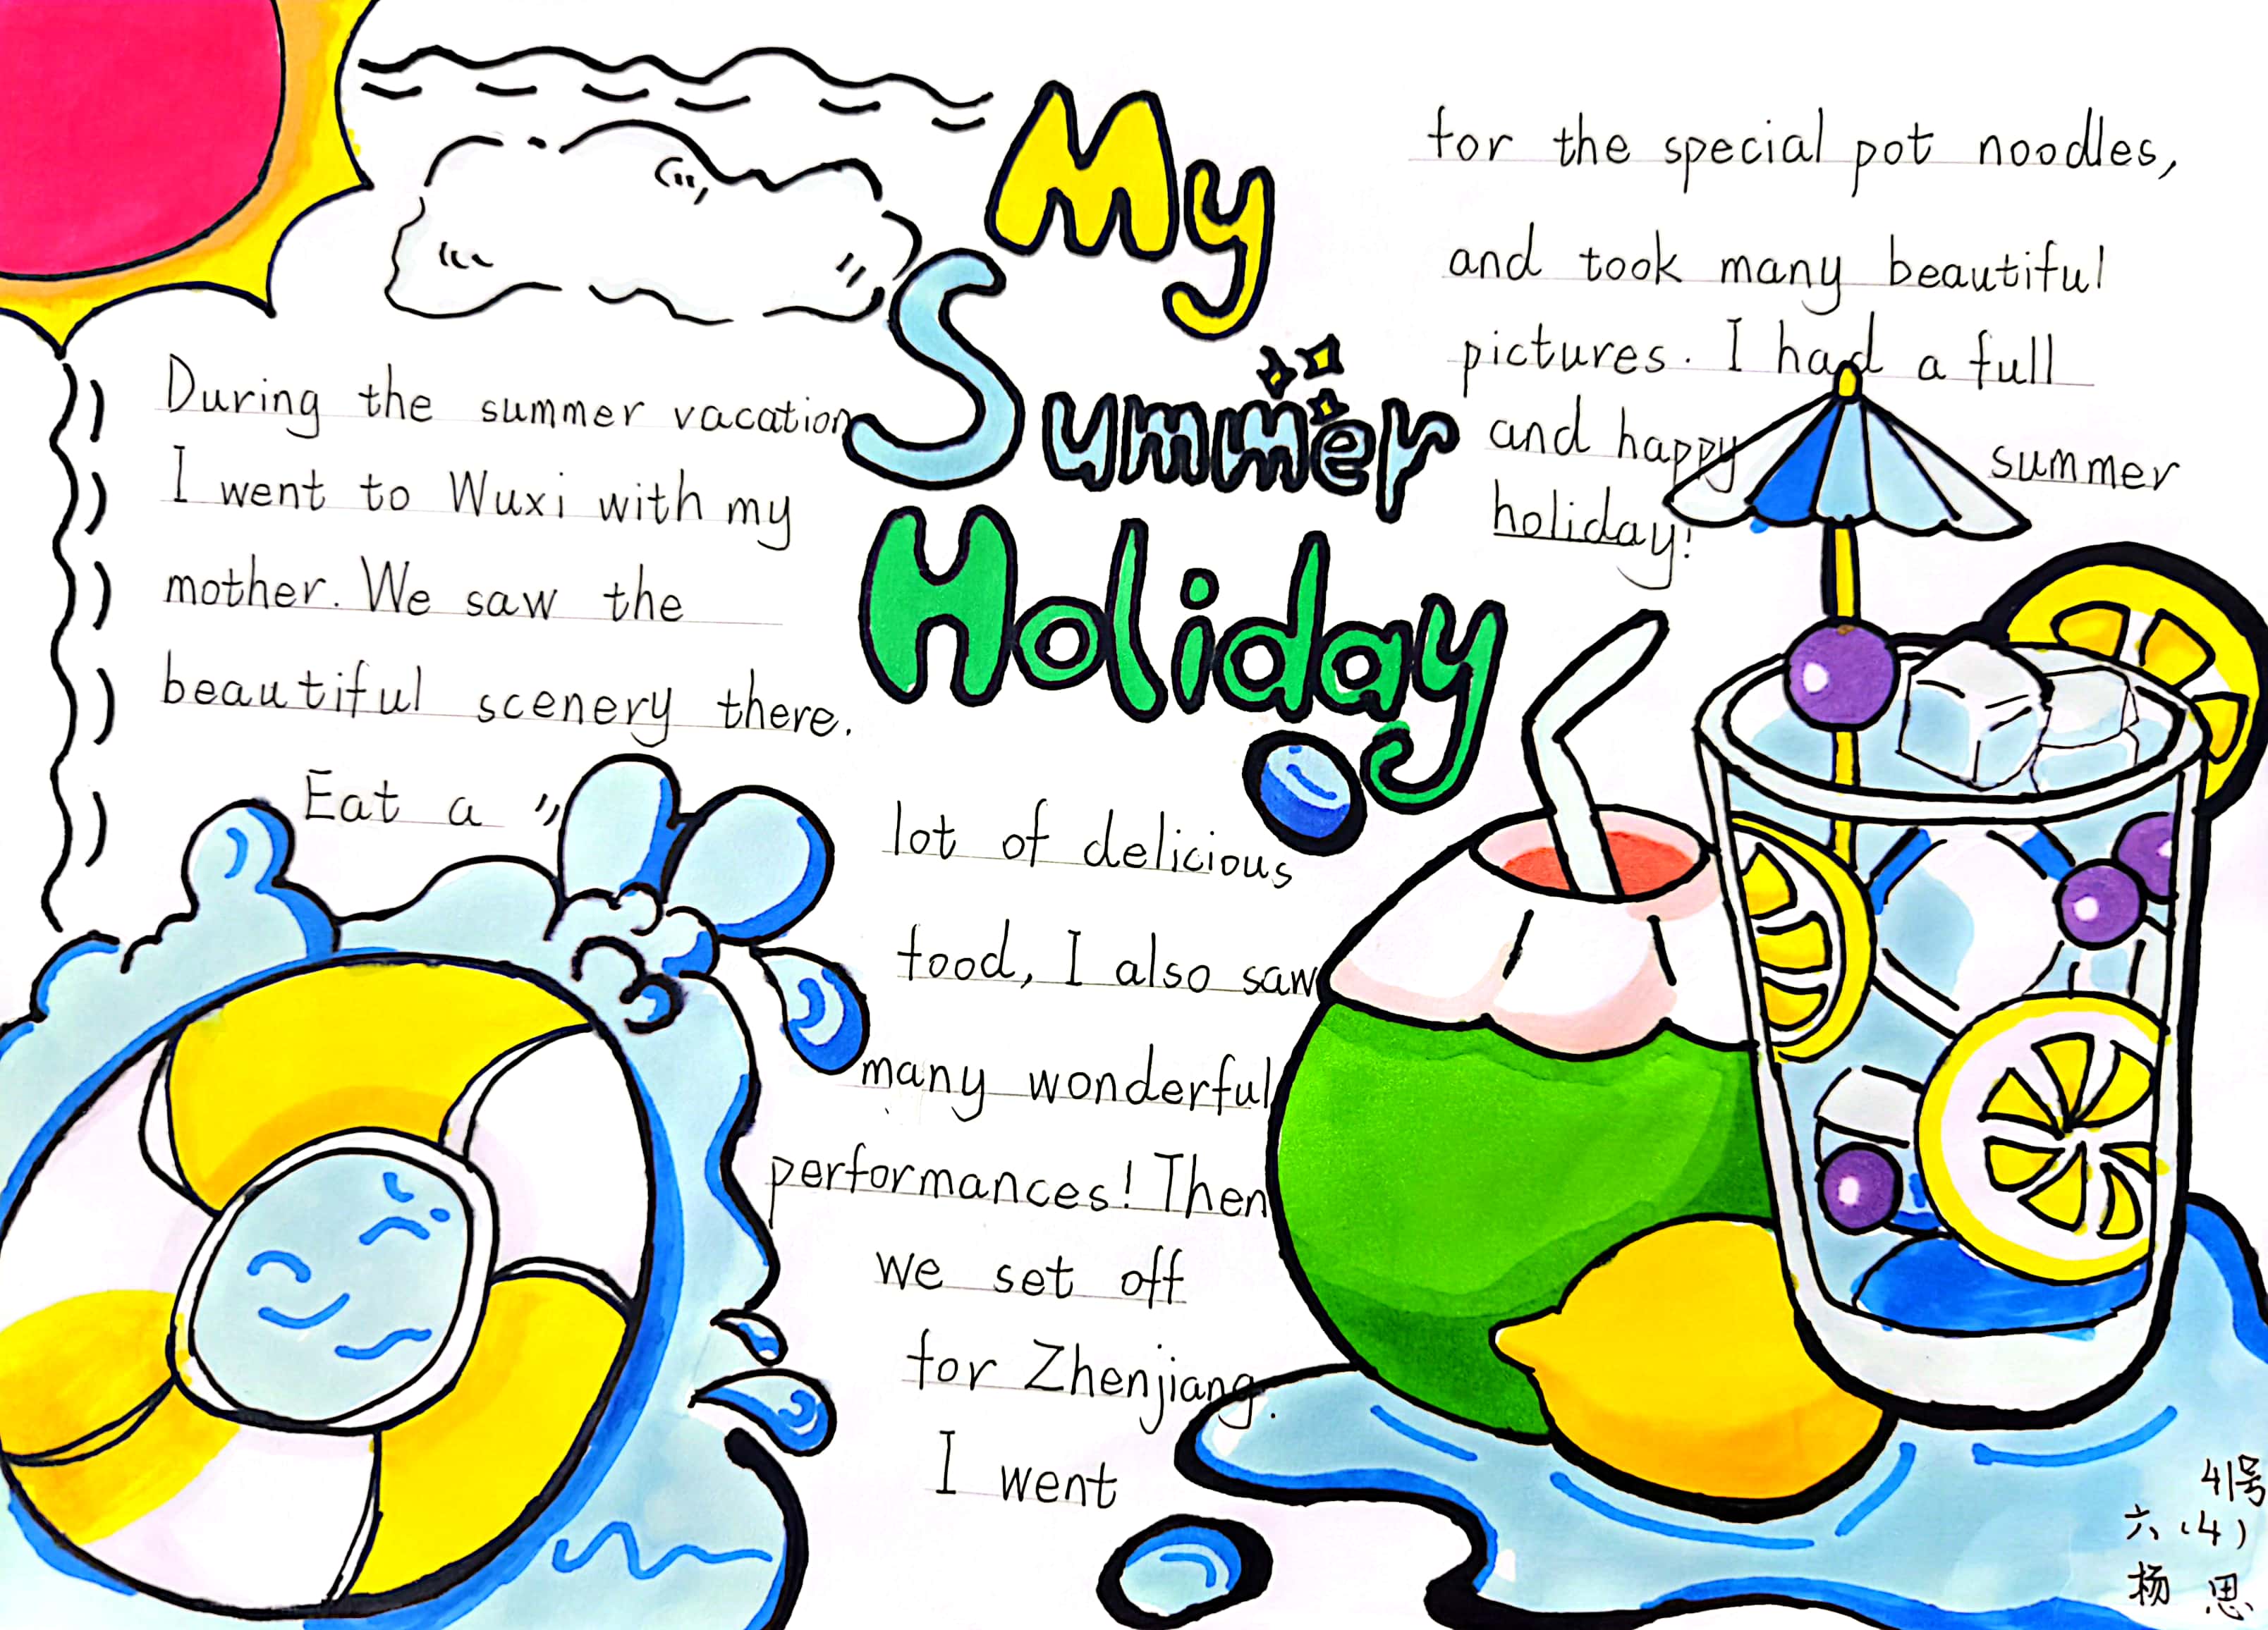 My
Summer
Holiday
During the summer vacation
I went to Wuxi with my
mother. We saw the
beautiful scenery there.
Eat a
lot of delicious
food, I also saw
many wonderful
performances! Then
we set off
for Zhenjiang.
I went
for the special pot noodles,
and took many beautiful
pictures. I had a full
and happy summer
holiday!
41号
六(4)
杨思